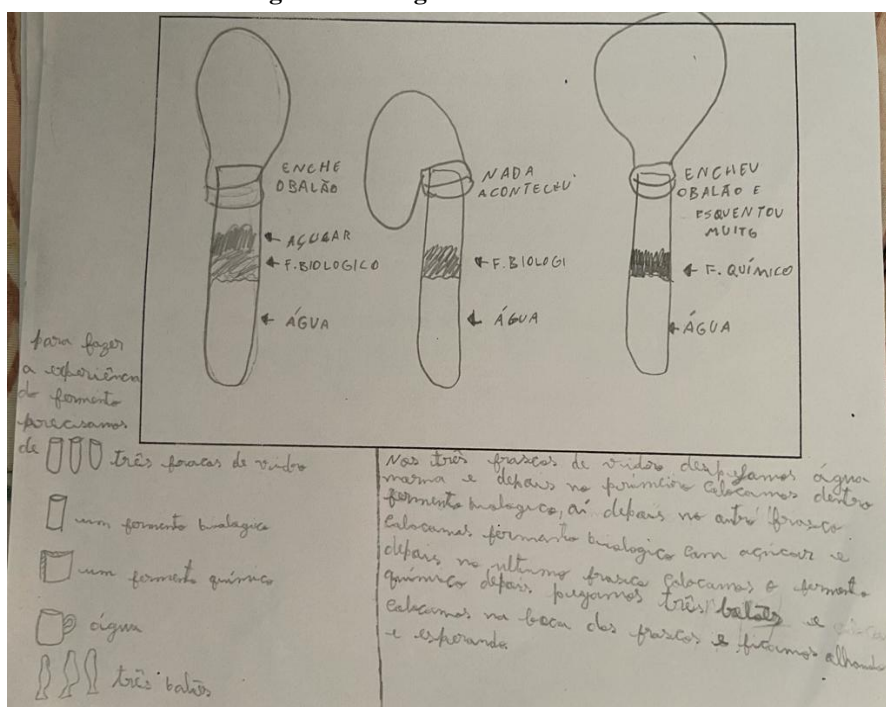 ENCHE
O BALÃO
AÇUCAR
F. BIOLOGICO
ÁGUA
NADA
ACONTECEU
F. BIOLOGI
ÁGUA
ENCHEU
O BALÃO E
ESQUENTOU
MUITO
F. QUÍMICO
ÁGUA
para fazer
a experiência
do fermento
precisamos
de três fracas de vidro
um fermento bialogico
um fermento químico
água
três balões
Nos três frascos de vidro despejamos água
marna e depois no primeiro calocamos dentro
fermento bialogico, aí depois no outro frasco
calocamos fermento bialogico com açucar e
depois no ultimo frasco calocamos o fermento
químico depois pegamos três balões e
calocamos na boca dos frascos e ficamos olhando
e esperando.